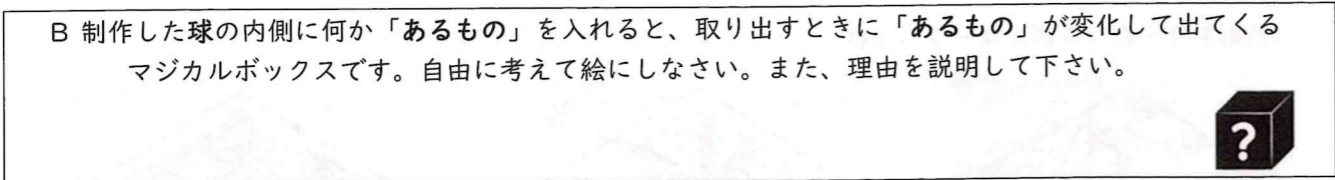 B 制作した球の内側に何か「あるもの」を入れると、取り出すときに「あるもの」が変化して出てくる
マジカルボックスです。自由に考えて絵にしなさい。また、理由を説明して下さい。
?